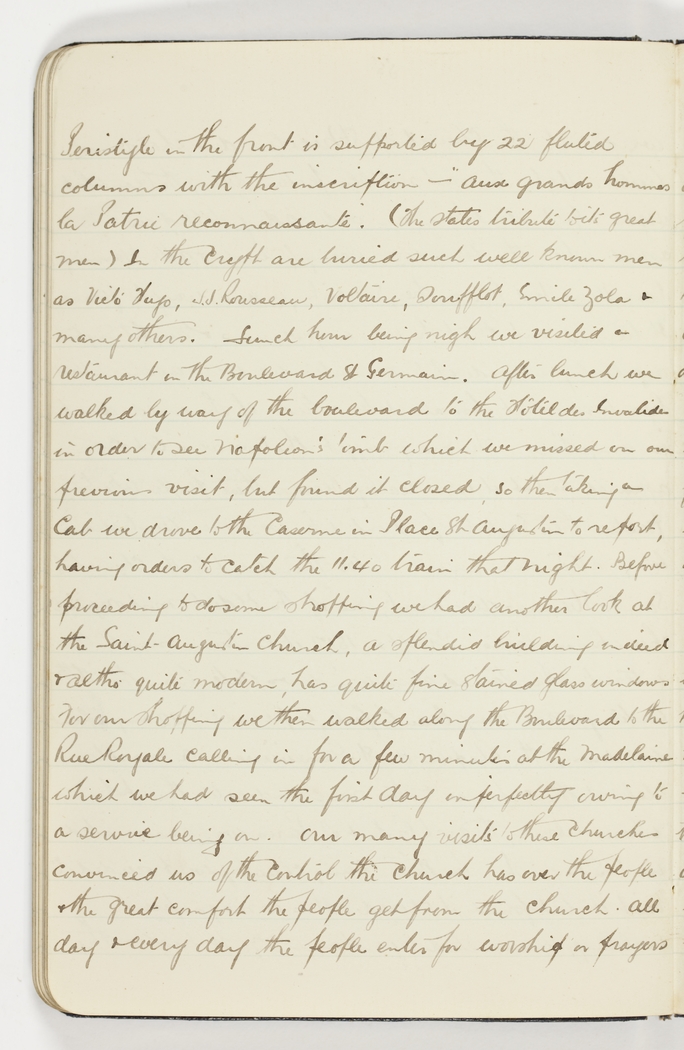 Peristyle in the front is supported by 22 fluted
columns with the inscription — "aux grands hommes
la Patrie reconnaissante". (The states tribute to its great
men) In the Crypt are buried such well known men
as Victo Hugo, J.J. Rousseau, Voltaire, Soufflot, Emile Zola &
many others. Lunch hour being nigh we visited a
restaurant in the Boulevard St Germain. After lunch we
walked by way of the boulevard to the Hôtel des Invalides
in order to see Napoleon's tomb which we missed on our
previous visit, but found it closed, so then taking a
Cab we drove to the Caserne in Place St Augustin to report,
having orders to catch the 11.40 train that night. Before
proceeding to do some shopping we had another look at
the Saint-Augustin Church, a splendid building indeed
& altho quite modern, has quite fine stained glass windows
For our shopping we then walked along the Boulevard to the
Rue Royale calling in for a few minutes at the Madelaine
which we had seen the first day imperfectly owing to
a service being on. Our many visits to these Churches
convinced us of the Control the Church has over the people
& the great comfort the people get from the Church. All
day & every day the people enter for worship or prayers